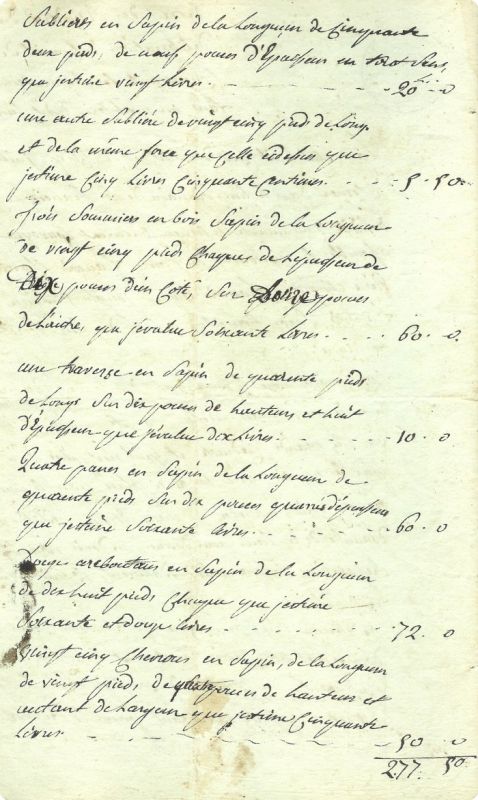 Sablieres en Sapin de la Longueur de Cinquante
deux pieds, de neuf pouces d'Epaisseur en tout Sens,
que jestime vingt Livres - - - 20 " 0
une autre Sabliére de vingt cinq pieds de Long.
et de la même force que Celle cidessus que
jestime Cinq Livres Cinquante Centimes. - - - 5. 50
Trois Sommiers en bois Sapin de la Longueur
de vingt cinq pieds Chaques de L'épaisseur de
Dix pouces d'un Coté, Sur Douze pouces
de L'autre, que j'évalue Soixante Livres. - - - 60. 0.
une traverse en Sapin de quarente pieds
de Longs Sur dix pouces de hauteurs et huit
d'Epaisseur que j'évalue dix Livres. - - - 10. 0
Quatre panes en Sapin de la Longueur de
quarente pieds Sur dix pouces quarrés d'épaisseur
que jestime Soixante Livres. - - - 60. 0
Douze arcboutans en Sapin de la Longueur
de dix huit pieds Chaque que jestime
Soixante et douze livres - - - 72. 0
vingt cinq Chevrons en Sapin, de la Longueur
de vingt pieds, de pouces de hauteur et
autant de Largeur que jestime Cinquante
Livres - - - 50 0
277. 50.